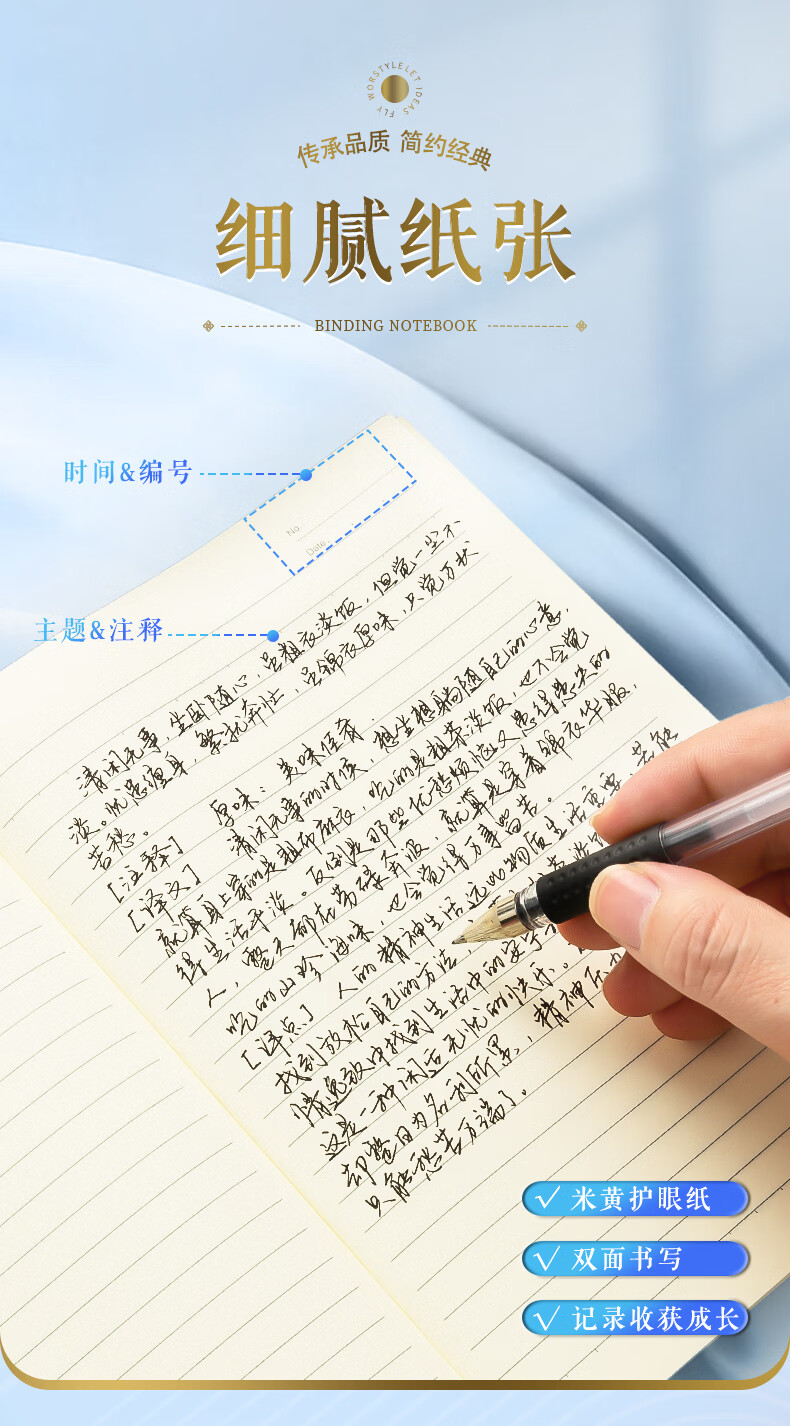 WORSTYLELET IDEAS FLY
传承品质 简约经典
细腻纸张
BINDING NOTEBOOK
时间&编号
No.
Date.
主题&注释
清闲无事,坐卧随心,虽粗衣淡饭,但觉一尘不
淡。忧患缠身,繁扰奔忙,虽锦衣厚味,只觉万状
苦愁。
[注释] 厚味:美味佳肴.
[译文] 清闲无事的时候,想坐想躺随自己的心意,
就算身上穿的是粗布麻衣,吃的是粗茶淡饭,也不会觉
得生活平淡。反倒是那些忧愁烦恼又患得患失的
人,整天都在劳碌奔波,就算是穿着锦衣华服,
吃的山珍海味,也会觉得万事皆苦。
[评点] 人的精神生活远比物质生活重要,若能
找到放松自己的方法,
情逸致中找到生活中的安宁
这是一种闲适无忧的快乐。
却整日为名利所累,精神压
只能愁苦万端了。
√ 米黄护眼纸
√ 双面书写
√ 记录收获成长